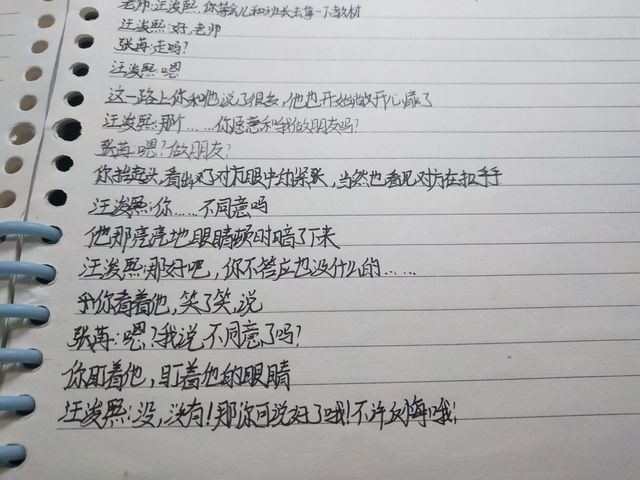 老师:汪浚熙,你等会儿和班长去拿一下教材
汪浚熙:好,老师
张苒:走吗?
汪浚熙:嗯
这一路上你和他说了很多,他也开始敞开心扉了
汪浚熙:那个……你愿意和我做朋友吗?
张苒:嗯?做朋友?
你抬起头,看出了对方眼中的紧张,当然也看见对方在扣手
汪浚熙:你……不同意吗
他那亮亮地眼睛顿时暗了下来
汪浚熙:那好吧,你不答应也没什么的……
你看着他,笑了笑,说
张苒:嗯?我说不同意了吗?
你盯着他,盯着他的眼睛
汪浚熙:没,没有!那你可说好了哦!不许反悔哦;